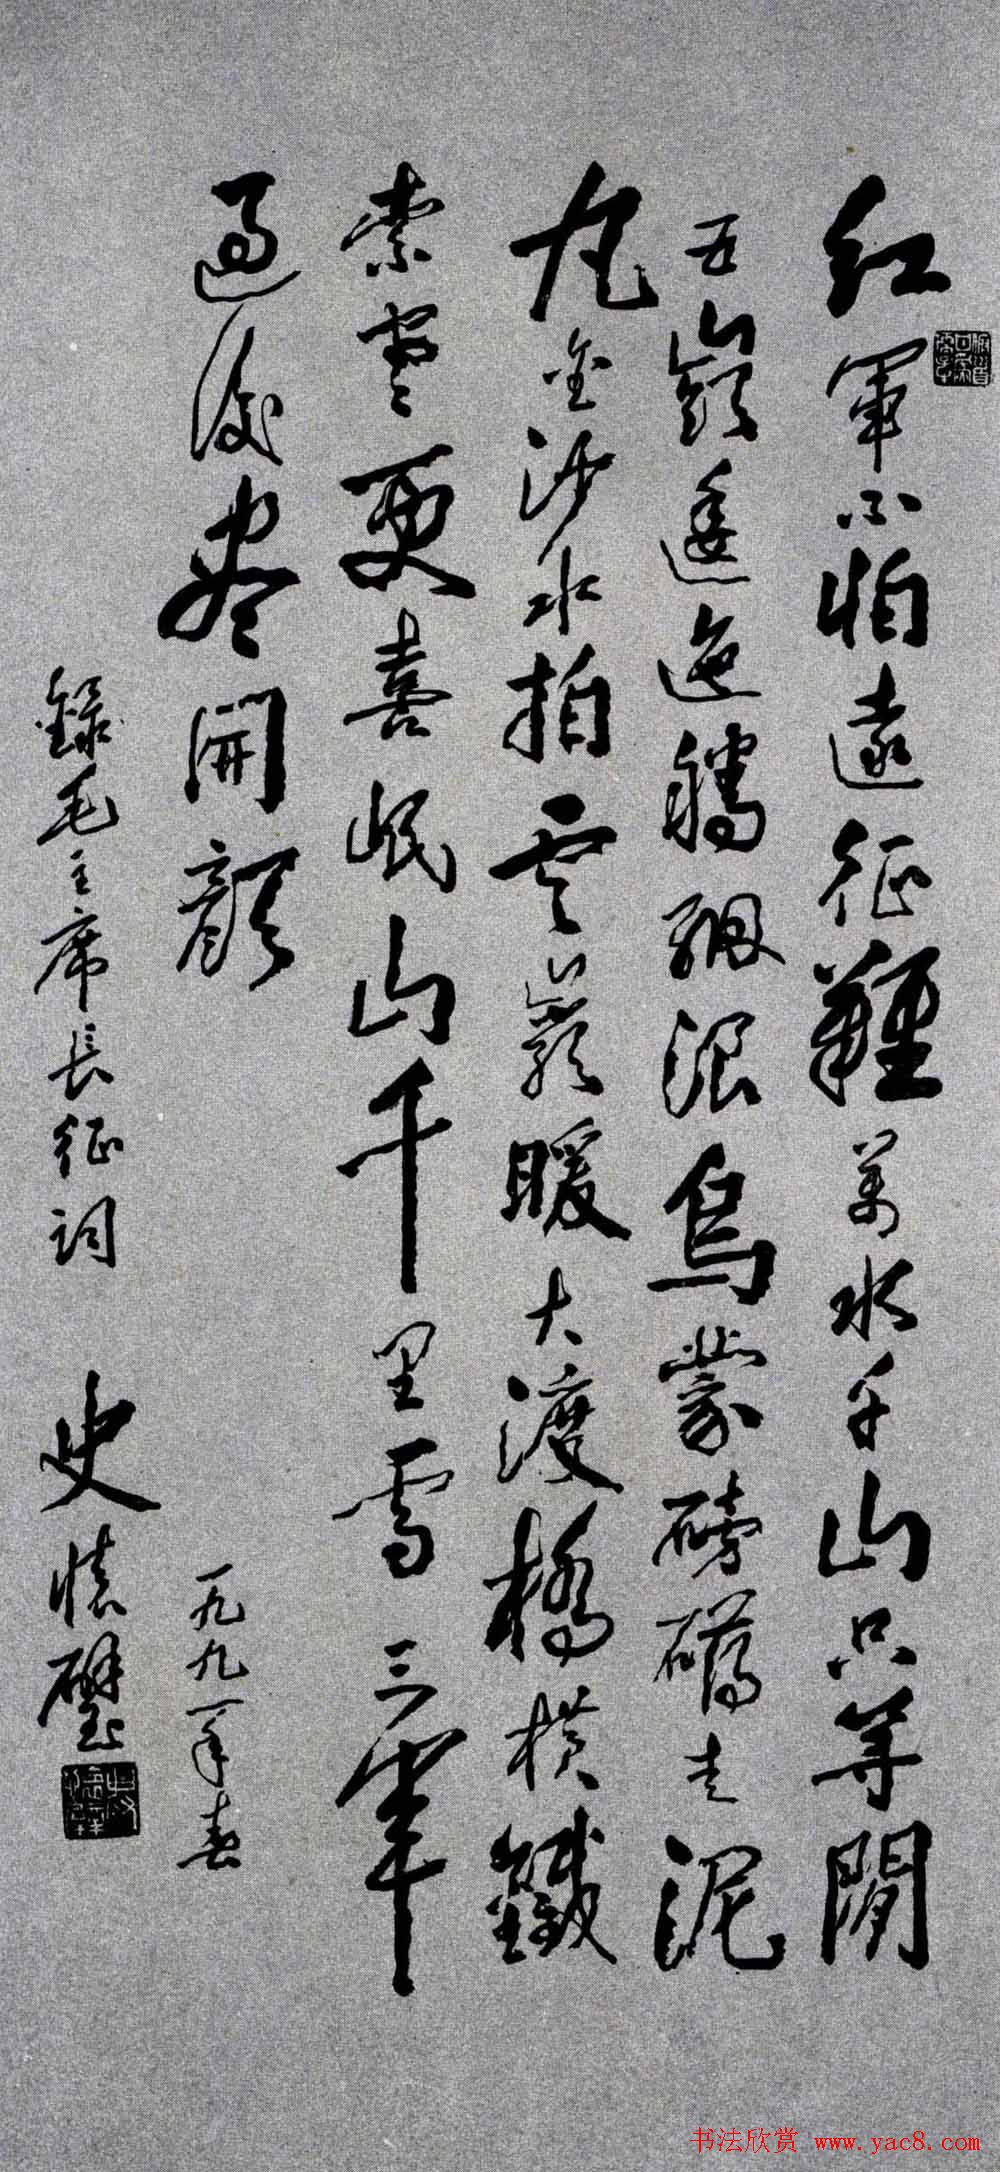 紅軍不怕遠征難萬水千山只等閒
五嶺逶迤騰細浪烏蒙磅礴走泥
丸金沙水拍雲巖暖大渡橋橫鐵
索寒更喜岷山千里雪三軍
過後盡開顏
錄毛主席長征詞 史懷璧
一九九一年春
书法欣赏 www.yac8.com